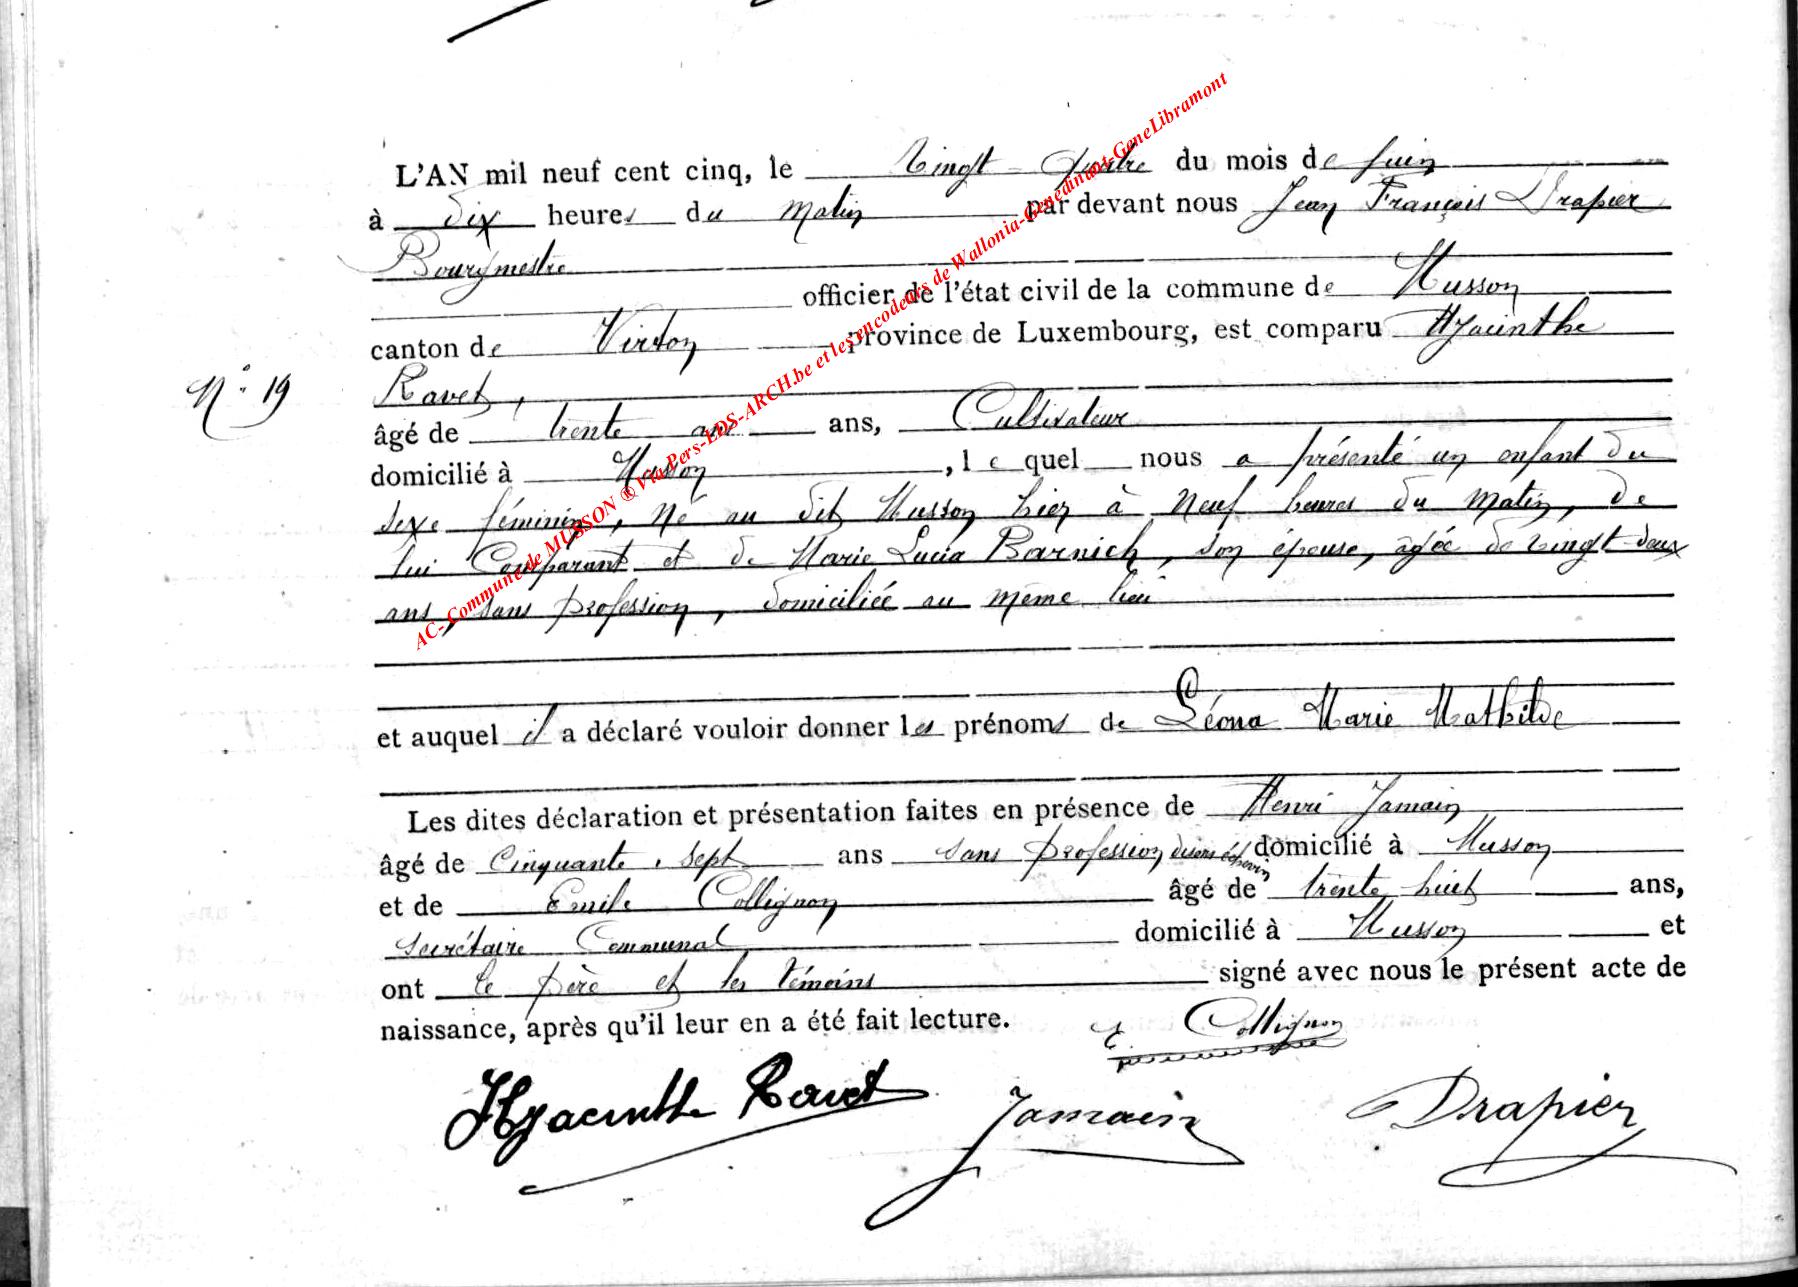 L'AN mil neuf cent cinq, le Vingt-quatre du mois de Juin
à Dix heures du Matin par devant nous Jean François Drapier
Bourgmestre
officier de l'état civil de la commune de Musson
canton de Virton province de Luxembourg, est comparu Hyacinthe
N° 19
Ravet,
âgé de trente ans ans, Cultivateur
domicilié à Musson, lequel nous a présenté un enfant du
sexe féminin, né au dit Musson hier à neuf heures du matin, de
lui Comparant et de Marie Lucia Barnich, son épouse, âgée de vingt-deux
ans, sans profession, domiciliée au même lieu
et auquel il a déclaré vouloir donner les prénoms de Léona Marie Mathilde
Les dites déclaration et présentation faites en présence de Henri Jamain
âgé de Cinquante-sept ans sans profession disons échevin domicilié à Musson
et de Emile Collignon âgé de trente huit ans,
secrétaire Communal domicilié à Musson et
ont le père et les témoins signé avec nous le présent acte de
naissance, après qu'il leur en a été fait lecture.
E. Collignon
Hyacinthe Ravet Jamain Drapier
AC-Commune de MUSSON ® Via Pers-EDS-ARCH.be et les encodeurs de Wallonia-Genedinant-GeneLibramont